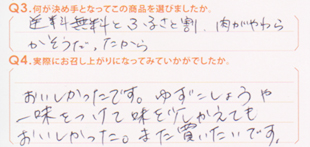 Q3.何が決め手となってこの商品を選びましたか。
送料無料とふるさと割、肉がやわら
かそうだったから
Q4.実際にお召し上がりになってみていかがでしたか。
おいしかったです。ゆずこしょうや
一味をつけて味を少しかえても
おいしかった。また買いたいです。